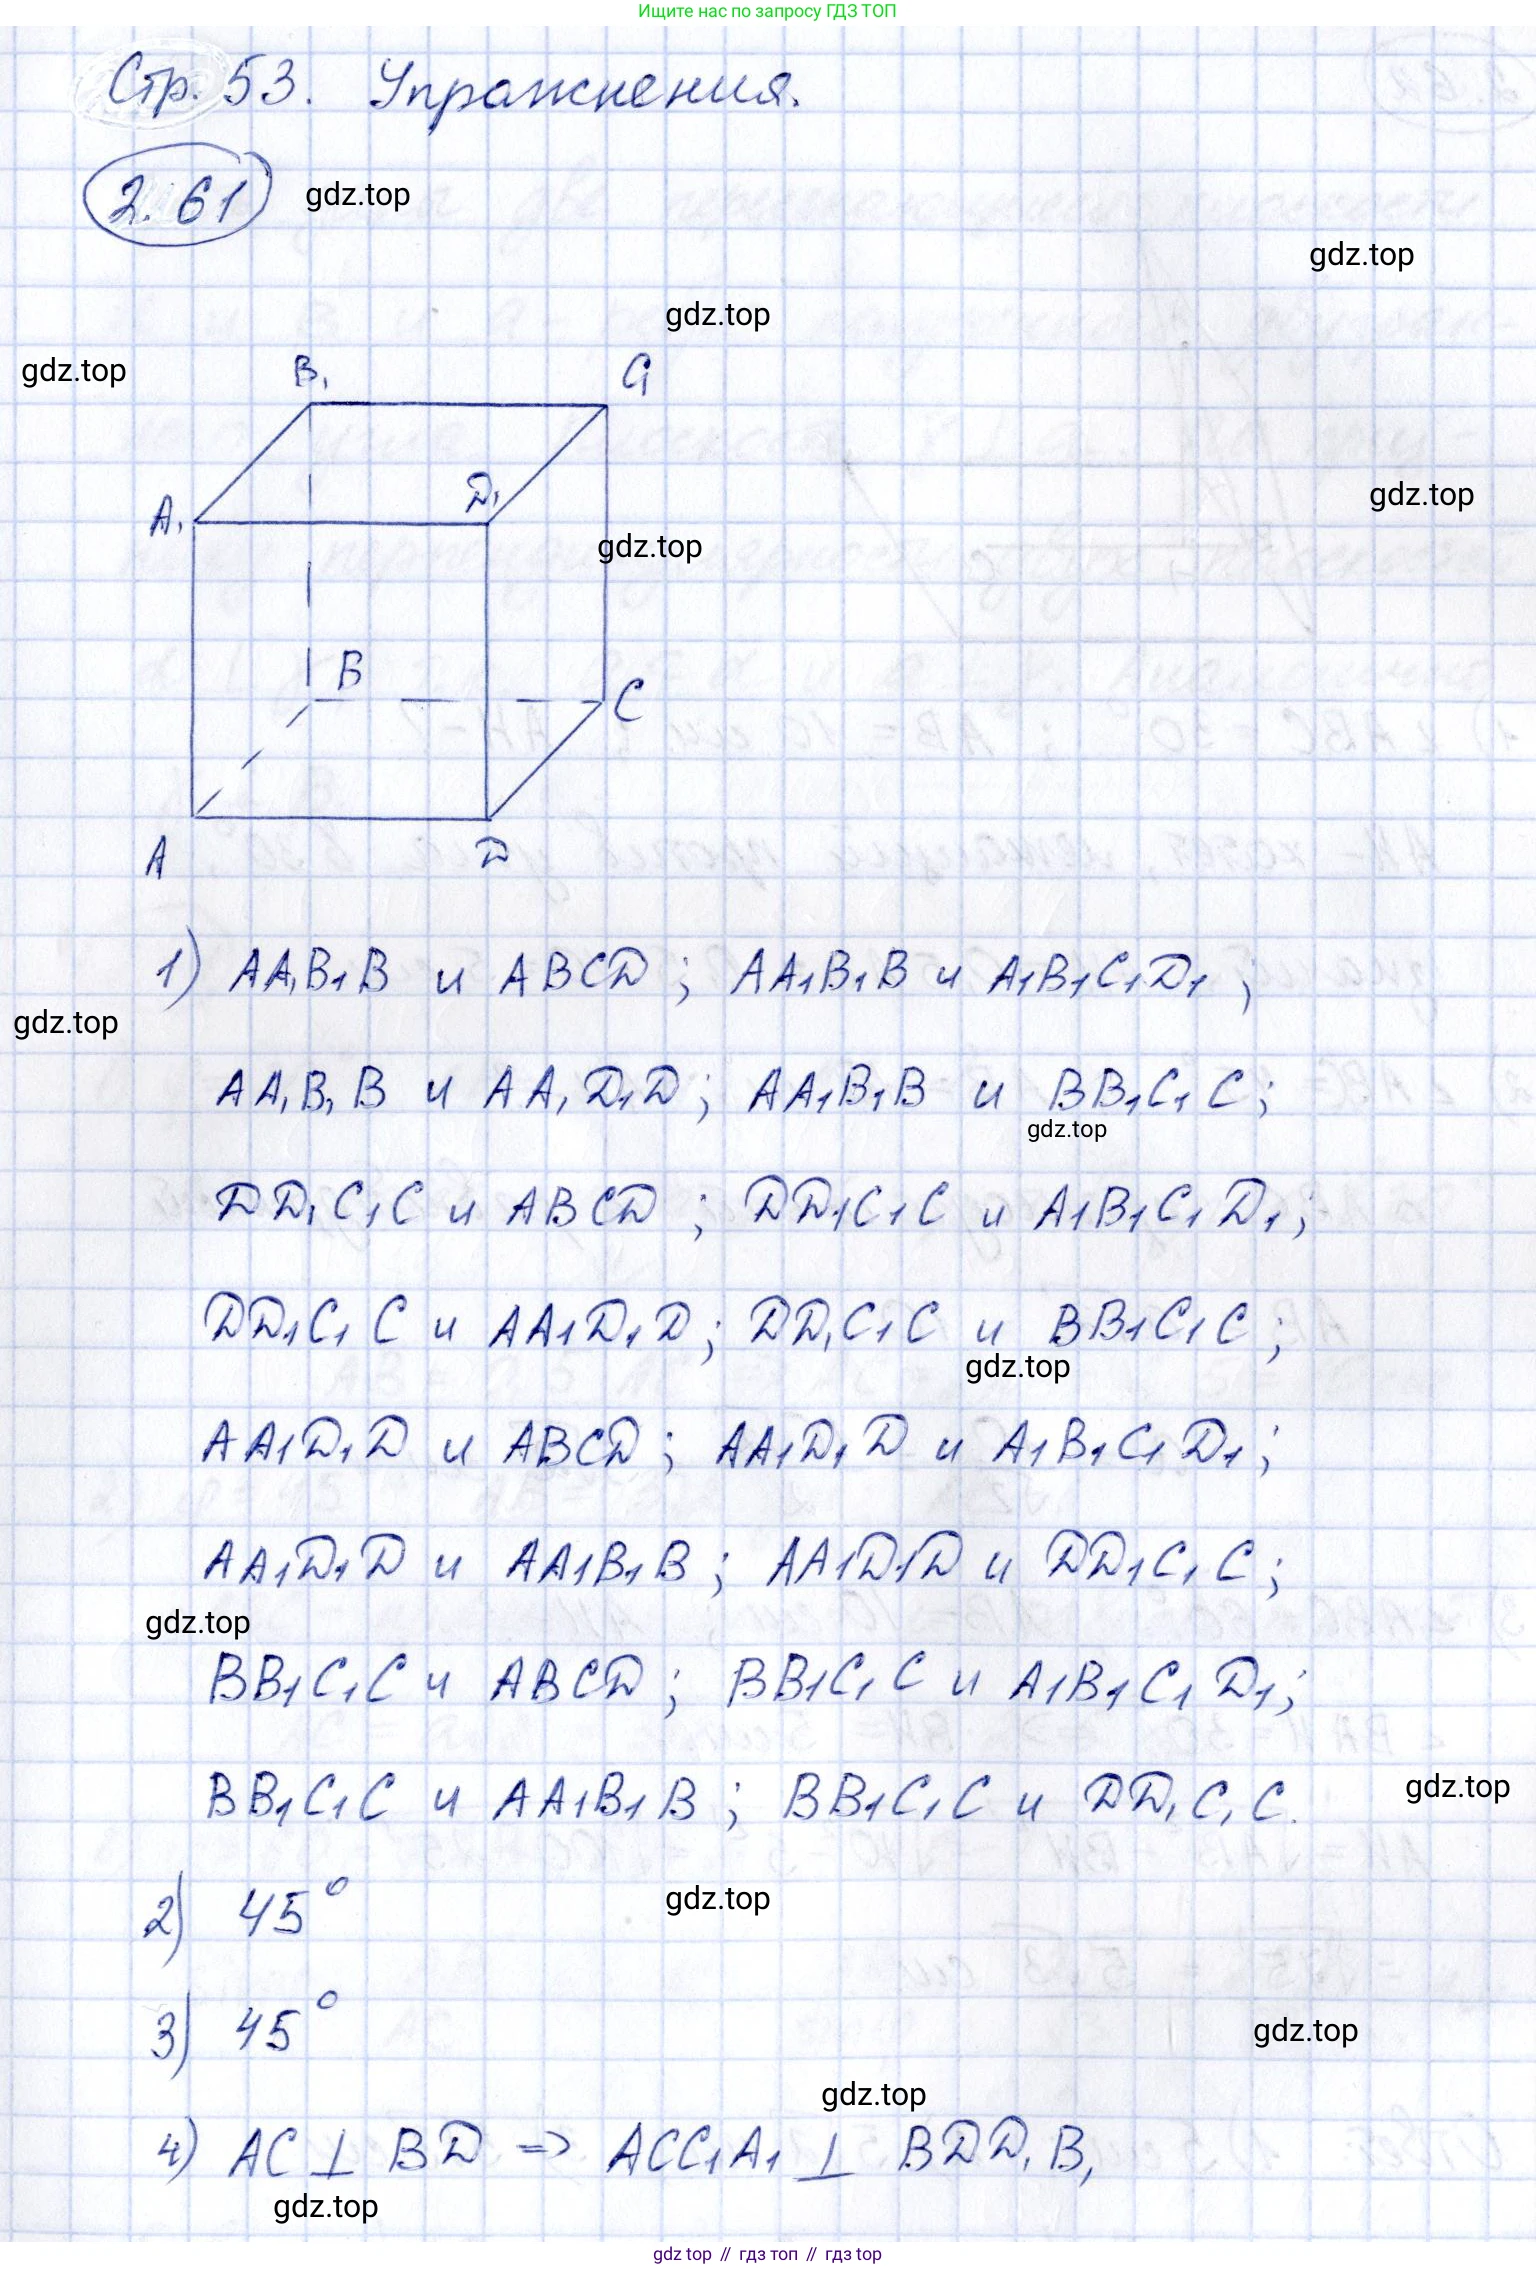 Ищите нас по запросу ГДЗ ТОП
Стр. 53. Упражнения.
2.61
gdz.top
gdz.top
gdz.top
gdz.top
B₁ C₁
A₁ D₁
gdz.top
gdz.top
B
C
A D
1) AA₁B₁B и ABCD; AA₁B₁B и A₁B₁C₁D₁;
gdz.top
AA₁B₁B и AA₁D₁D; AA₁B₁B и BB₁C₁C;
gdz.top
DD₁C₁C и ABCD; DD₁C₁C и A₁B₁C₁D₁;
DD₁C₁C и AA₁D₁D; DD₁C₁C и BB₁C₁C;
gdz.top
AA₁D₁D и ABCD; AA₁D₁D и A₁B₁C₁D₁;
AA₁D₁D и AA₁B₁B; AA₁D₁D и DD₁C₁C;
gdz.top
BB₁C₁C и ABCD; BB₁C₁C и A₁B₁C₁D₁;
BB₁C₁C и AA₁B₁B; BB₁C₁C и DD₁C₁C.
gdz.top
2) 45°
gdz.top
3) 45°
gdz.top
gdz.top
4) AC ⊥ BD => ACC₁A₁ ⊥ BDD₁B₁
gdz.top
gdz top // гдз топ // гдз top